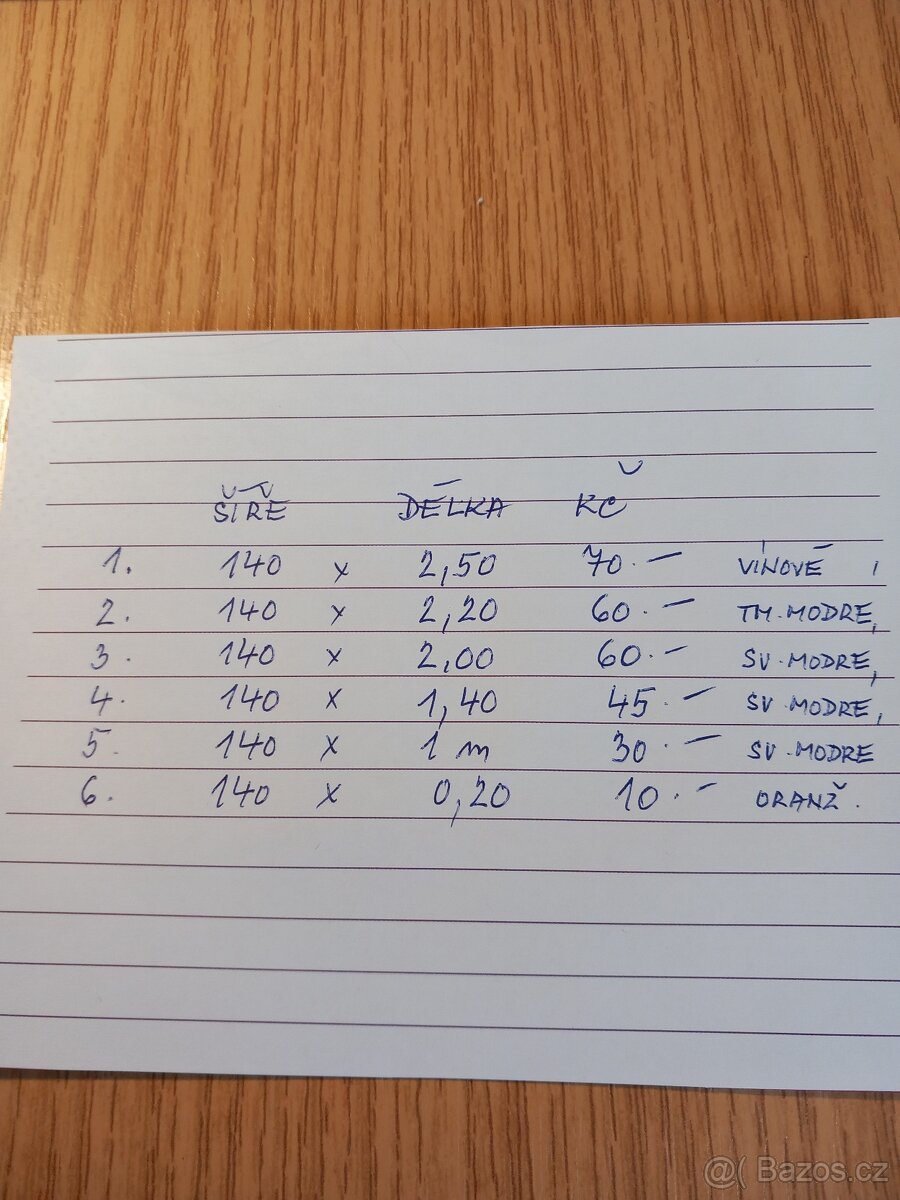 ŠÍŘE DÉLKA KČ
1. 140 x 2,50 70.– VÍNOVÉ,
2. 140 x 2,20 60.– TM.MODRE,
3. 140 x 2,00 60.– SV.MODRE,
4. 140 x 1,40 45.– SV.MODRE,
5. 140 x 1 m 30.– SV.MODRE
6. 140 x 0,20 10.– ORANŽ.
@( Bazos.cz